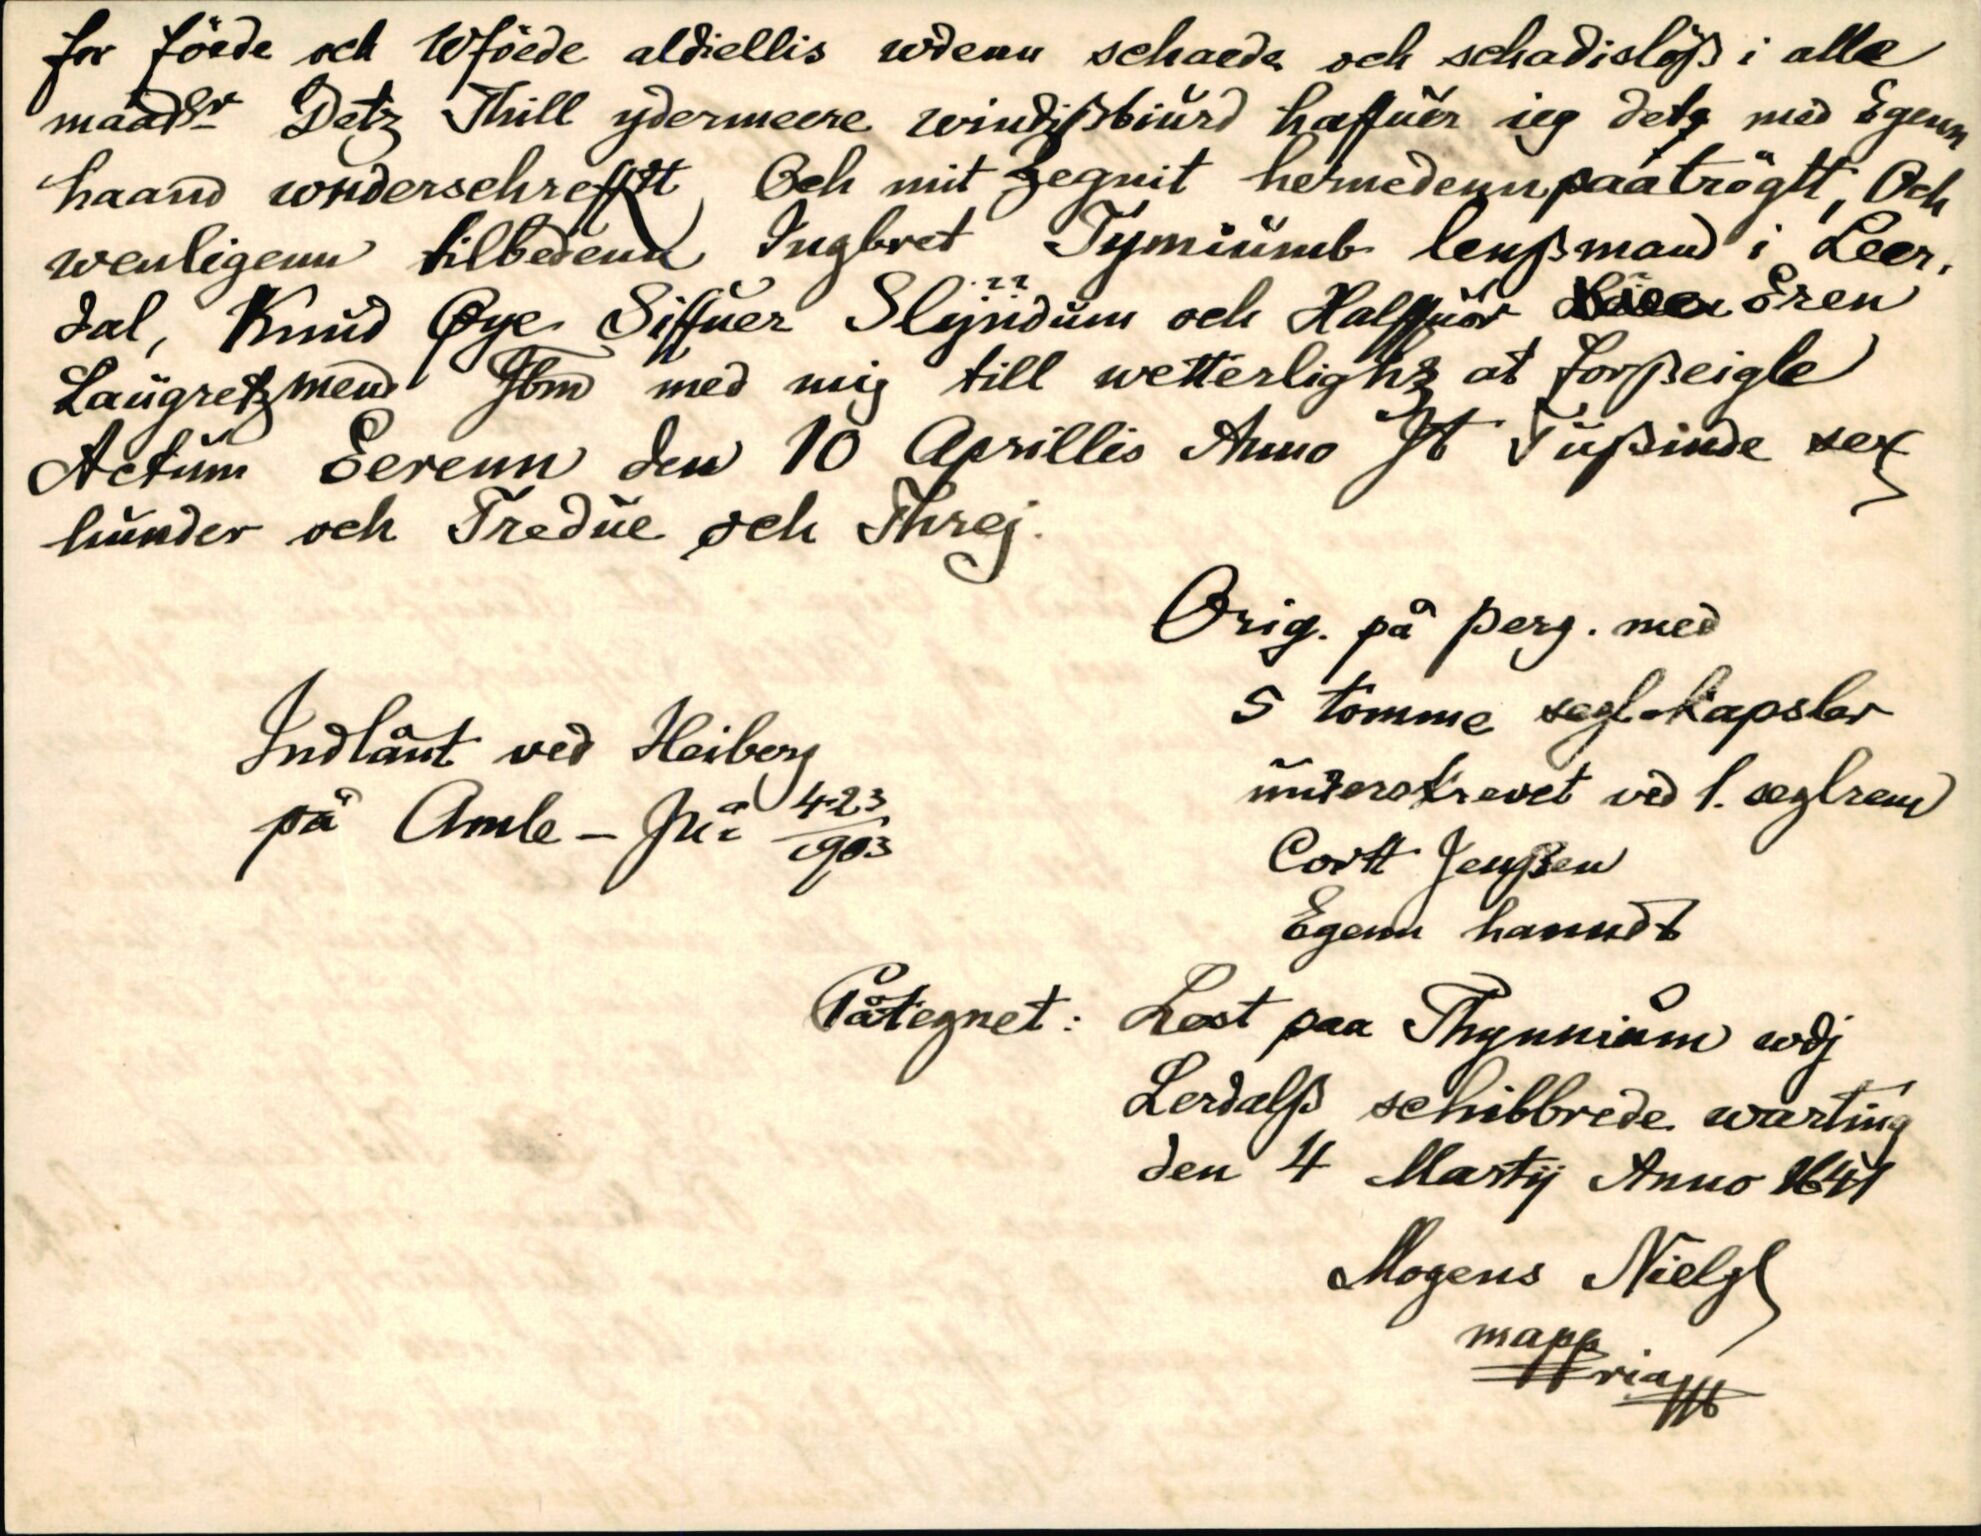 for föede och Wföede aldiellis wdenn schaede och schadislöß i alle
maader Detz Thill ydermeere windißbiürd haffüer ieg detz med Egenn
haand wnderschrefftt, Och mit Zegnit hernedenn paatrögtt, Och
wenligenn tilbedenn Ingbret Tymiümb lenßmand i Leer,
dal, Knüd Øye Siffüer Slÿndüm och Halffüor Eren
Laügretzmend Ibm med mig till wetterlighz at forßeigle
Actüm Eerenn den 10 Aprillis Anno It Tüßinde sex
hünder och Tredüe och Threj.
Orig. på perg. med
5 tomme segl-kapsler
ünderskrevet ved 1. seglrem
Cortt Jenßen
Egenn hanndt
Indlånt ved Heiberg
på Amle – 4-23/903
Påtegnet: Lest paa Thynniům wdj
Lerdalß schibbrede waarting
den 4 Martij Anno 1641
Mogens Nielß
mapp
ria